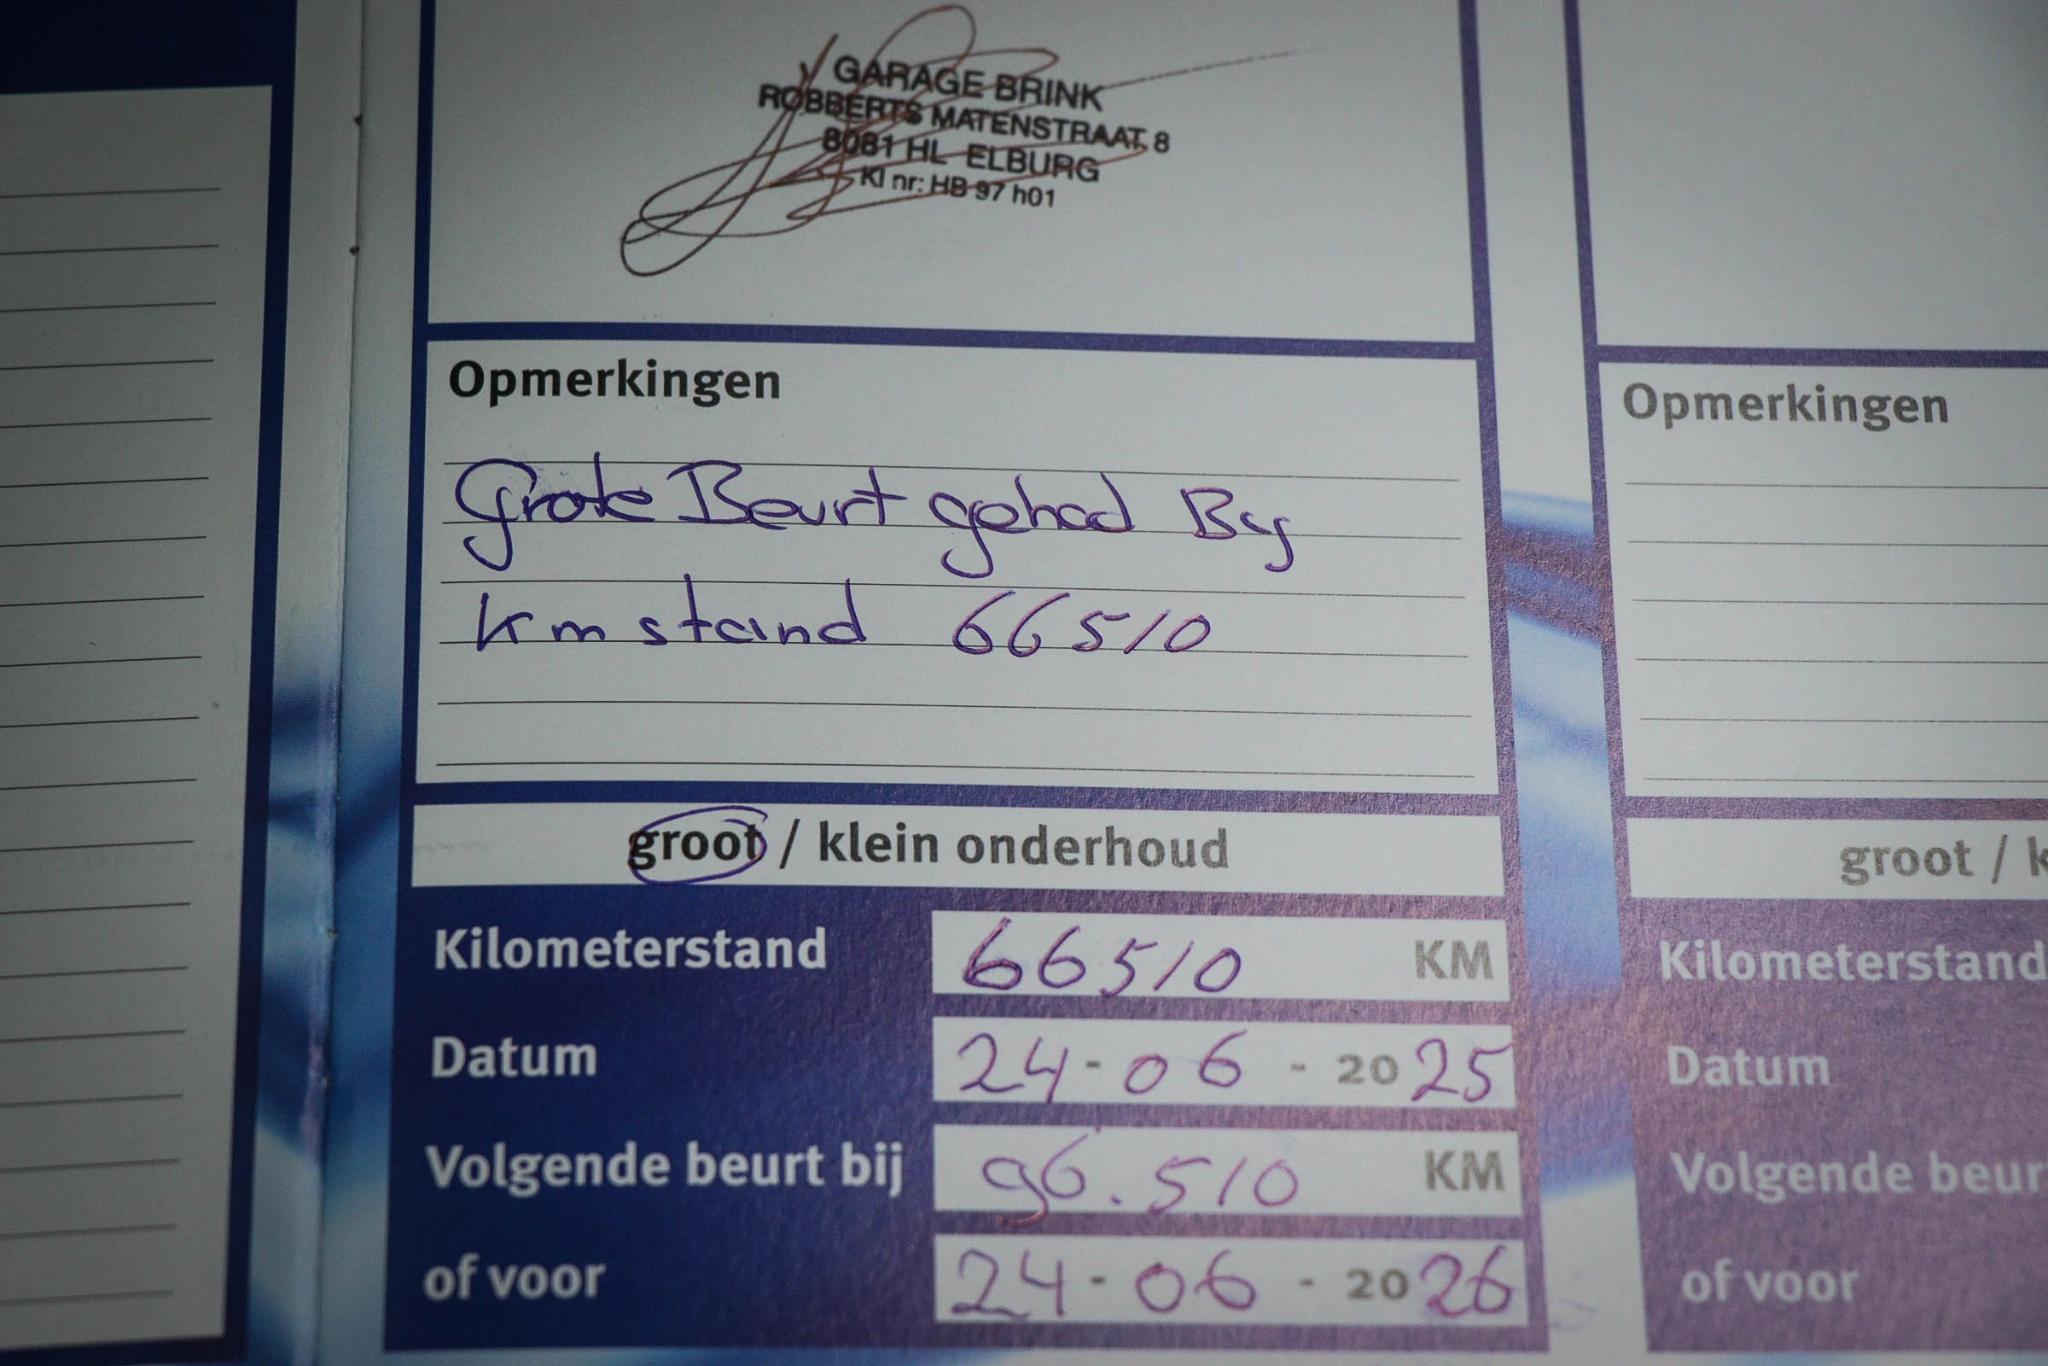 GARAGE BRINK
ROBBERTS MATENSTRAAT 8
8081 HL ELBURG
KI nr: HB 97 h01
Opmerkingen
Grote Beurt gehad Bij
km stand 66510
groot / klein onderhoud
Kilometerstand 66510 KM
Datum 24-06-2025
Volgende beurt bij 96.510 KM
of voor 24-06-2026
Opmerkingen
groot / k
Kilometerstand
Datum
Volgende beur
of voor